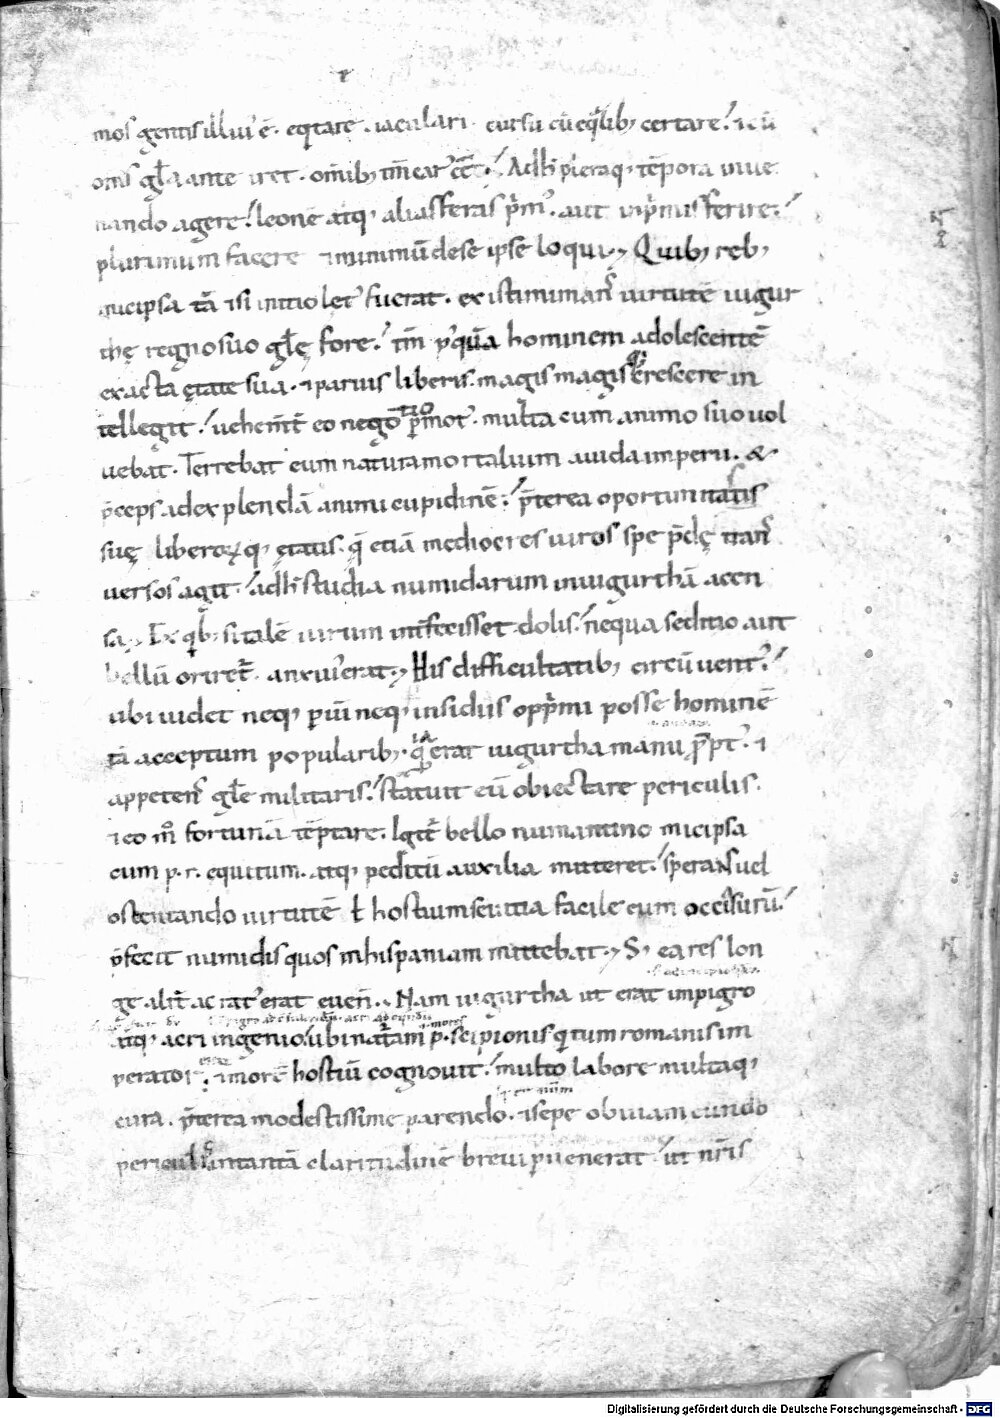 mos gentis illius ē. eqtare. iaculari. cursu cū eqlib; certare. & cū
om̄s gl̄a ante iret. omīb; tm̄ car' eēt. Adh' pleraq; tēpora in ue
nando agere. leonē atq; alias feras prim'. aut in primis ferire.
plurimum facere & minimū de se ipse loqui. Quib; reb;
micipsa tā & si initio let' fuerat. existimans uirtutē iugur
thę regno suo gl̄ę fore. tm̄ p'quā hominem adolescentē
exacta ętate sua. & paruis liberis. magis magisq; crescere in
tellegit. uehem̄t eo negotio p̄mot'. multa cum animo suo uol
uebat. Terrebat eum natura mortalium auida imperii. &
p̄ceps ad explendā animi cupidinē. p̄terea oportunitatis
suę liberorūq; ętatis. q̄ etiā mediocres uiros spe p̄dę trans
uersos agit. adh' studia numidarum in iugurthā accen
sa. Ex qb; si talē uirum interfecisset dolis. nequa seditio aut
bellū oriret̄. anxius erat. His difficultatib; circūuent'.
ubi uidet neq; p uim neq; insidiis opprimi posse hominē
tā acceptum popularib;. qd̄ erat iugurtha manu prōpt'. &
appetens gl̄e militaris. statuit eū obiectare periculis.
& eo m̊ fortunā tēptare. Igit̄ bello numantino micipsa
cum p. r. equitum. atq; peditū auxilia mitteret. sperans uel
ostentando uirtutē ł hostium seuitia facile eum occisurū.
p̄fecit numidis quos in hispaniam mittebat. S; ea res lon
ge alit̄ ac rat' erat euen̄. Nam iugurtha ut erat impigro
atq; acri ingenio. ubi naturam p. scipionis q tum romanis im
perator & morē hostiū cognouit. multo labore multaq;
cura. p̄terea modestissime parendo. & sepe obuiam eundo
periculis in tantā claritudinē breui p̄uenerat. ut nr̄is
Digitalisierung gefördert durch die Deutsche Forschungsgemeinschaft - DFG